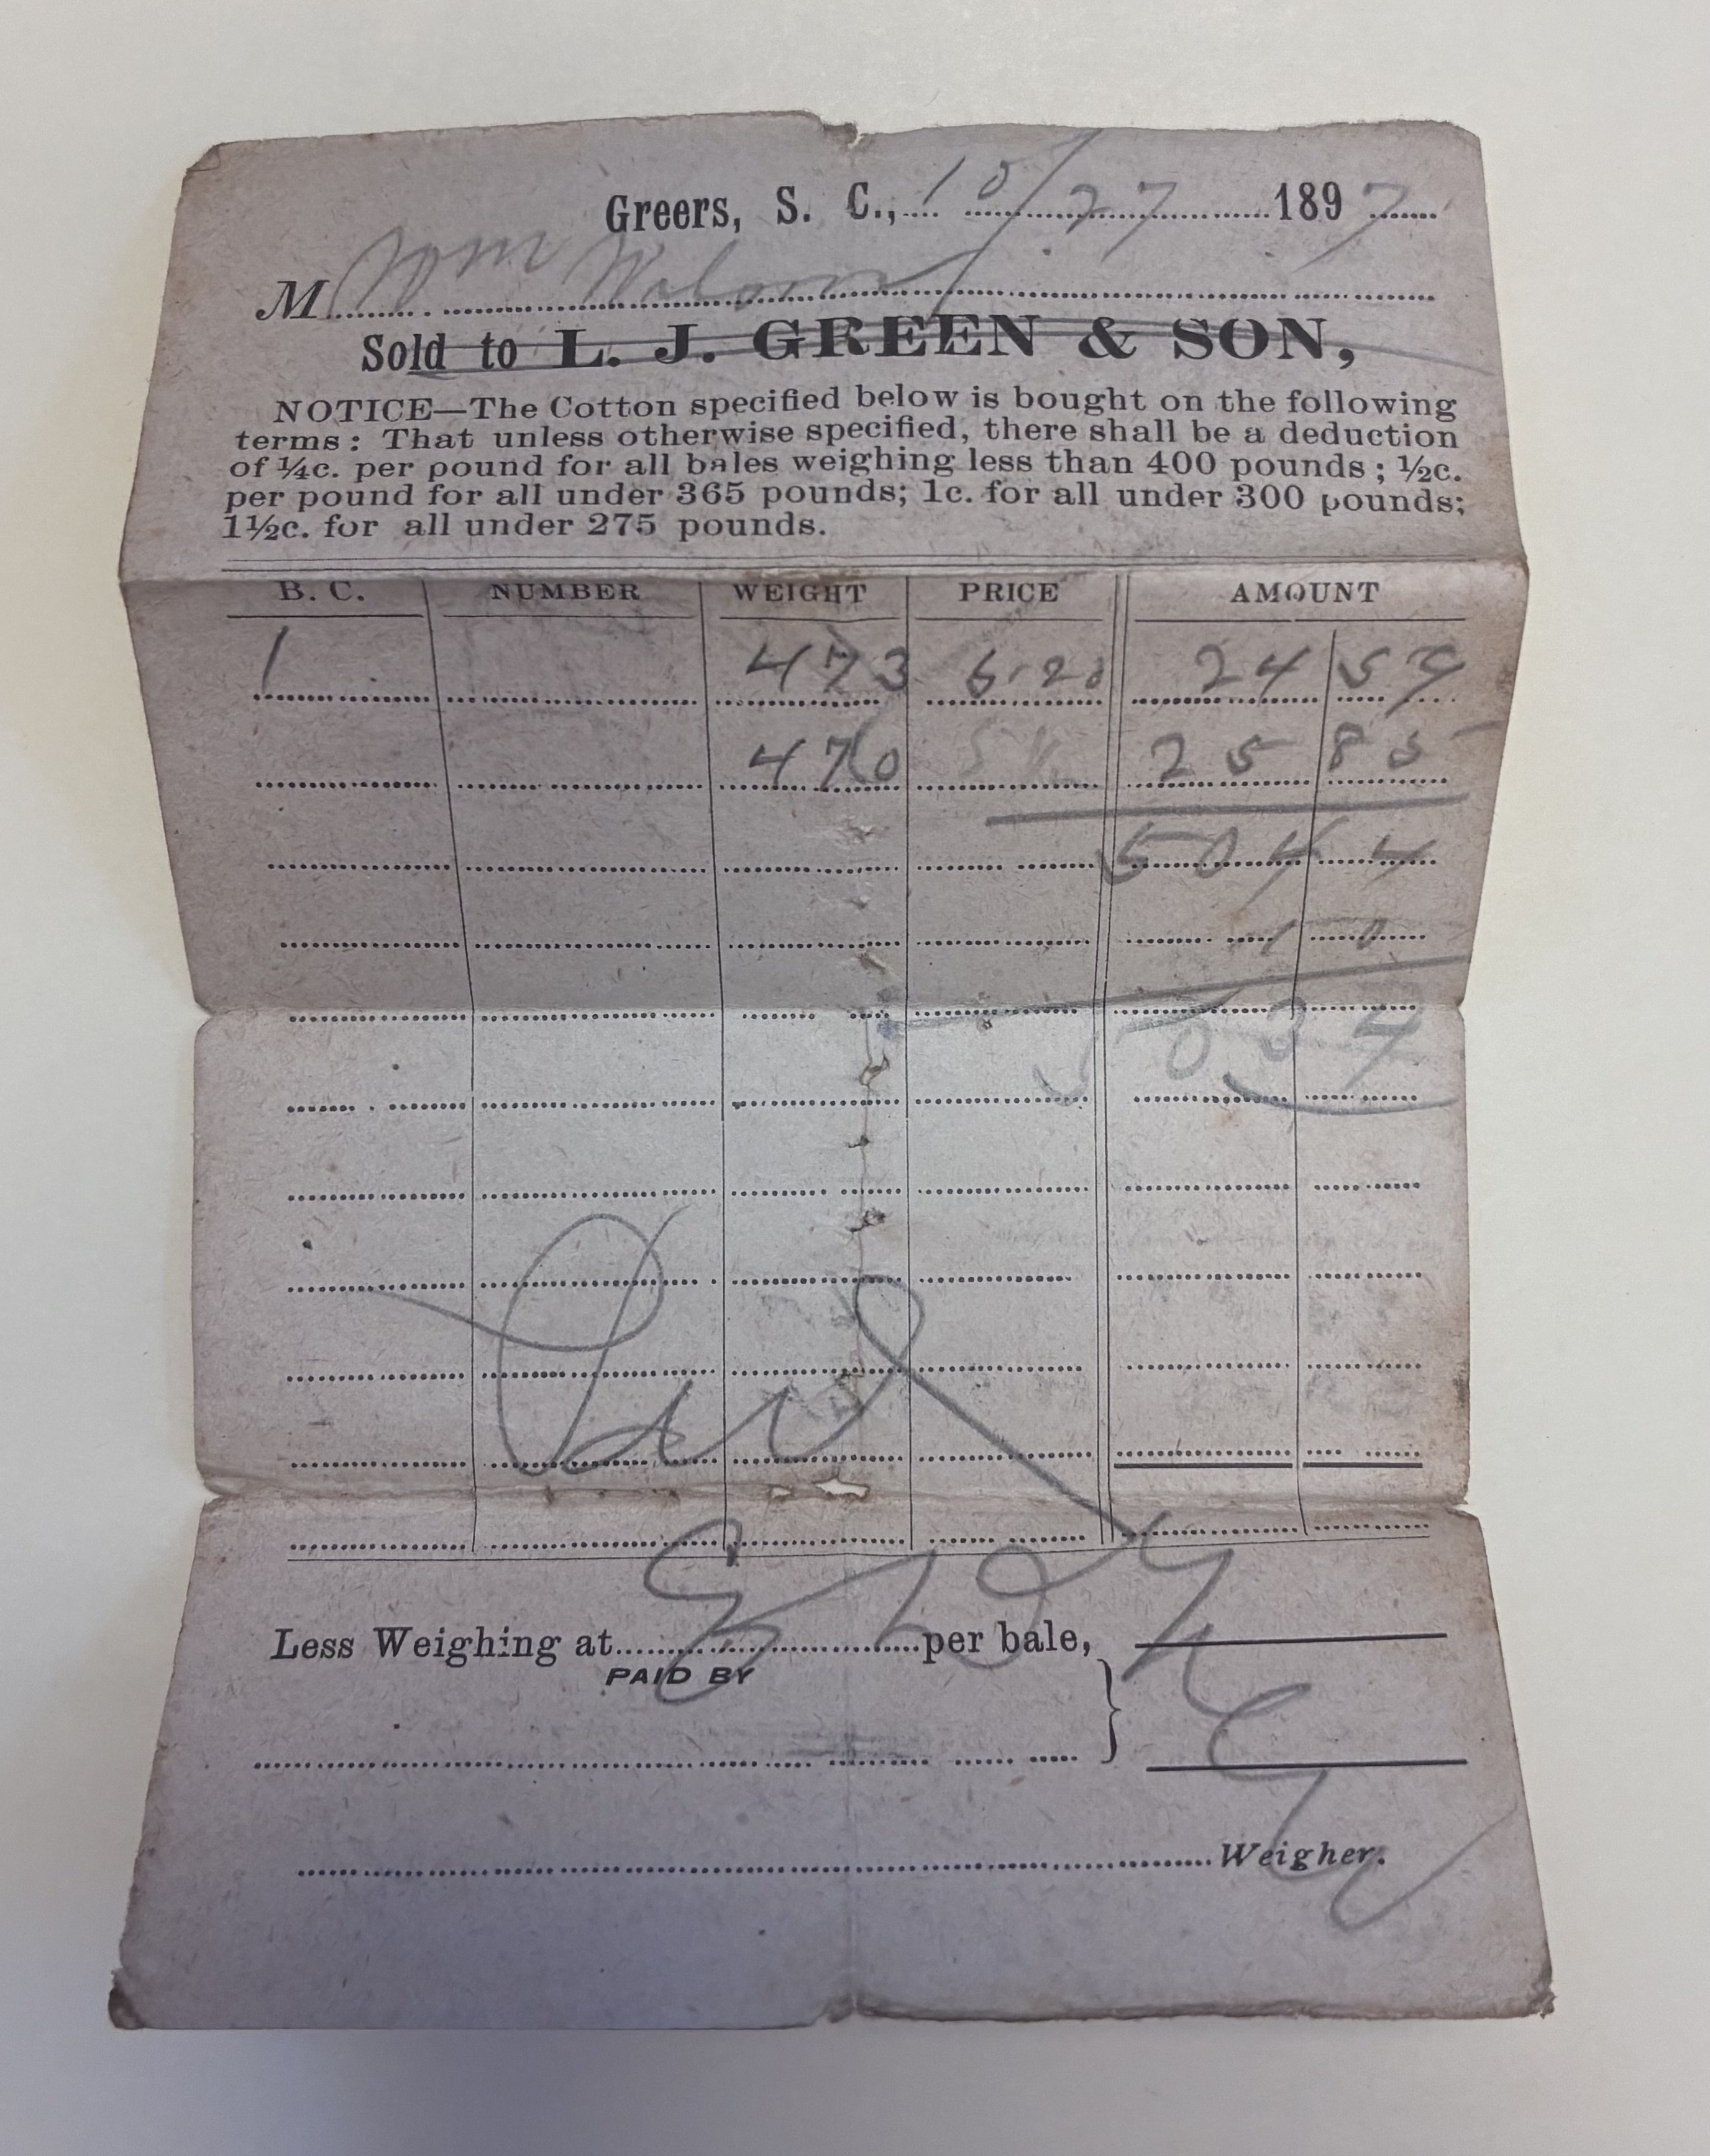 Greers, S. C., 10/27 1897
M Wm Wilson
Sold to L. J. GREEN & SON,
NOTICE—The Cotton specified below is bought on the following
terms: That unless otherwise specified, there shall be a deduction
of ¼c. per pound for all bales weighing less than 400 pounds; ½c.
per pound for all under 365 pounds; 1c. for all under 300 pounds;
1½c. for all under 275 pounds.
B. C. NUMBER WEIGHT PRICE AMOUNT
1 473 5.20 24 59
470 5½ 25 85
50 44
10
50 34
Paid
Less Weighing at per bale,
PAID BY
Weigher.